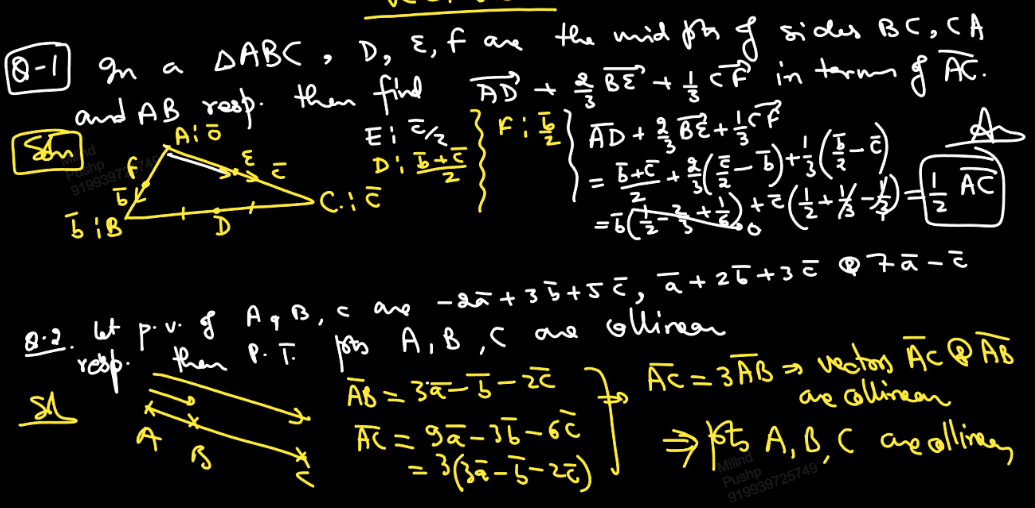 Q-1 In a ΔABC, D, E, F are the mid pts of sides BC, CA
and AB resp. then find AD + 2/3 BE + 1/3 CF in terms of AC.
Soln
A: ō
F
E
c̄
b̄
b̄ : B
D
C : c̄
E : c̄/2
D : (b̄+c̄)/2
F : b̄/2
AD + 2/3 BE + 1/3 CF
= (b̄+c̄)/2 + 2/3 (c̄/2 − b̄) + 1/3 (b̄/2 − c̄)
= b̄(1/2 − 2/3 + 1/6) 0 + c̄(1/2 + 1/3 − 1/3) = 1/2 AC
Ans
Q.2. Let p.v. of A, B, C are −2ā + 3b̄ + 5c̄, ā + 2b̄ + 3c̄ & 7ā − c̄
resp. then P.T. pts A, B, C are collinear
Sol
A
B
C
AB = 3ā − b̄ − 2c̄
AC = 9ā − 3b̄ − 6c̄
= 3(3ā − b̄ − 2c̄)
⇒ AC = 3AB ⇒ vectors AC & AB
are collinear
⇒ pts A, B, C are collinear
Milind
Pushp
919939725749